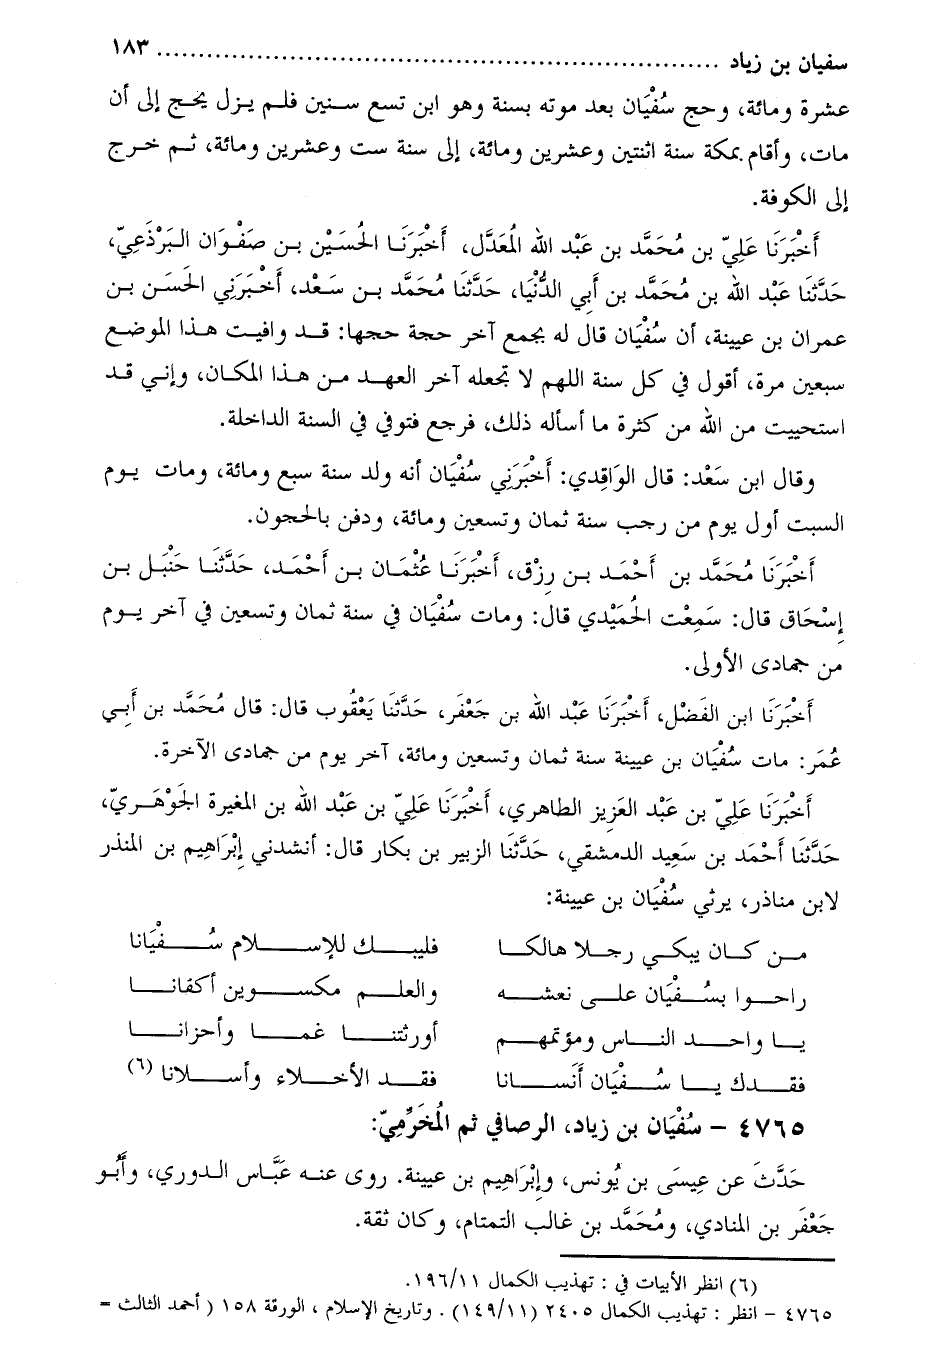 سفيان بن زياد ........................................................................ ١٨٣
عشرة ومائة، وحج سُفْيَان بعد موته بسنة وهو ابن تسع سنين فلم يزل يحج إلى أن
مات، وأقام بمكة سنة اثنتين وعشرين ومائة، إلى سنة ست وعشرين ومائة، ثم خرج
إلى الكوفة.
أَخْبَرَنَا عَلِيّ بن مُحَمَّد بن عَبْد الله المُعَدَّل، أَخْبَرَنَا الحُسَيْن بن صَفْوَان البَرْذَعِيّ،
حَدَّثَنَا عَبْد الله بن مُحَمَّد بن أَبِي الدُّنْيَا، حَدَّثَنَا مُحَمَّد بن سَعْد، أَخْبَرَنِي الحَسَن بن
عمران بن عيينة، أن سُفْيَان قال له بجمع آخر حجة حجها: قد وافيت هذا الموضع
سبعين مرة، أقول في كل سنة اللهم لا تجعله آخر العهد من هذا المكان، وإني قد
استحييت من الله من كثرة ما أسأله ذلك، فرجع فتوفي في السنة الداخلة.
وقال ابن سَعْد: قال الوَاقِدي: أَخْبَرَنِي سُفْيَان أنه ولد سنة سبع ومائة، ومات يوم
السبت أول يوم من رجب سنة ثمان وتسعين ومائة، ودفن بالحجون.
أَخْبَرَنَا مُحَمَّد بن أَحْمَد بن رِزْق، أَخْبَرَنَا عُثْمَان بن أَحْمَد، حَدَّثَنَا حَنْبَل بن
إِسْحَاق قال: سَمِعْت الحُمَيْدي قال: ومات سُفْيَان في سنة ثمان وتسعين في آخر يوم
من جمادى الأولى.
أَخْبَرَنَا ابن الفَضْل، أَخْبَرَنَا عَبْد الله بن جَعْفَر، حَدَّثَنَا يَعْقُوب قال: قال مُحَمَّد بن أَبِي
عُمَر: مات سُفْيَان بن عيينة سنة ثمان وتسعين ومائة، آخر يوم من جمادى الآخرة.
أَخْبَرَنَا عَلِيّ بن عَبْد العَزِيز الطاهري، أَخْبَرَنَا عَلِيّ بن عَبْد الله بن المغيرة الجَوْهَرِيّ،
حَدَّثَنَا أَحْمَد بن سَعِيد الدمشقي، حَدَّثَنَا الزبير بن بكار قال: أنشدني إِبْرَاهِيم بن المنذر
لابن مناذر، يرثي سُفْيَان بن عيينة:
من كان يبكي رجلا هالكا فليبك للإسلام سُفْيَانا
راحوا بسُفْيَان على نعشه والعلم مكسوين أكفانا
يا واحد الناس ومؤتمهم أورثتنا غما وأحزانا
فقدك يا سُفْيَان أَنسَانا فقد الأخلاء وأسلانا (٦)
٤٧٦٥ - سُفْيَان بن زياد، الرصافي ثم المُخَرِّمِيّ:
حَدَّث عن عِيسَى بن يُونس، وإِبْرَاهِيم بن عيينة. روى عنه عَبَّاس الدوري، وأَبُو
جَعْفَر بن المنادي، ومُحَمَّد بن غالب التمتام، وكان ثقة.
(٦) انظر الأبيات في : تهذيب الكمال ١٩٦/١١.
٤٧٦٥ - انظر : تهذيب الكمال ٢٤٠٥ (١٤٩/١١) . وتاريخ الإسلام ، الورقة ١٥٨ ( أحمد الثالث =